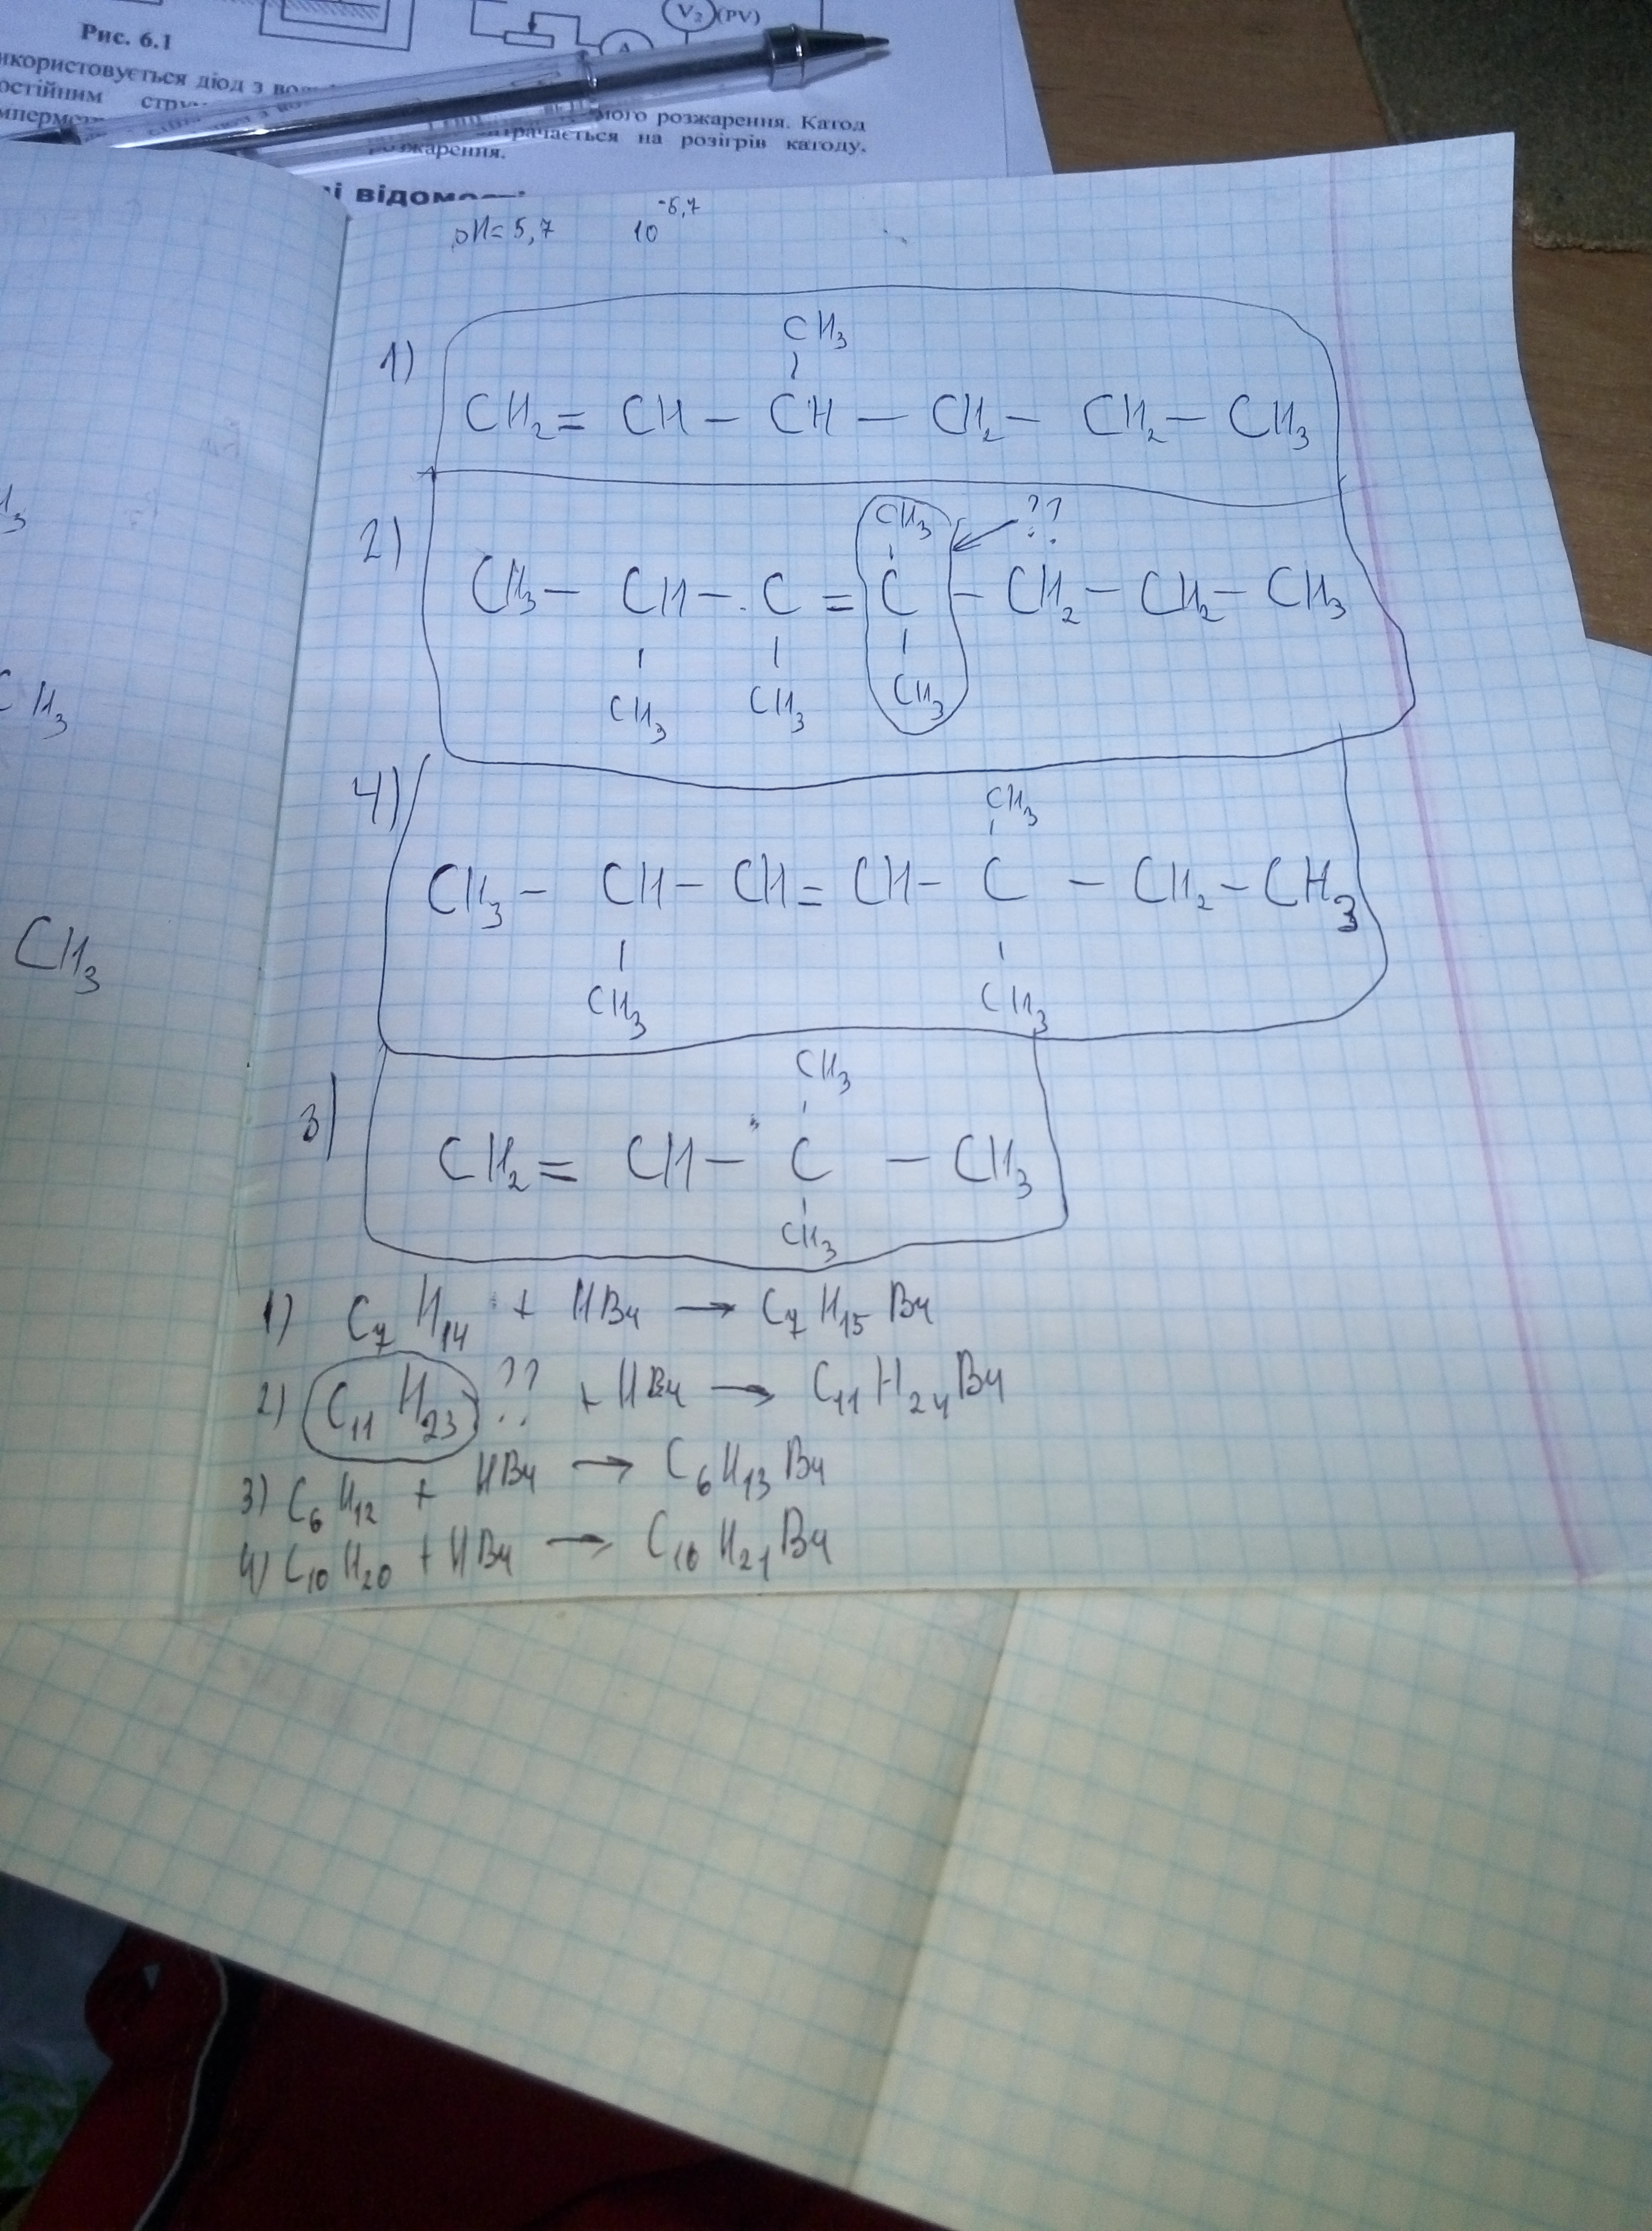 V₂ (PV)
A
Рис. 6.1
икористовується діод з
остійним
мого розжарення. Катод
трачається на розігрів катоду.
розжарення.
і відомо
pH = 5,7 10^-5,7
CH₃
1) CH₂ = CH – CH – CH₂ – CH₂ – CH₃
CH₃ ??
2) CH₃ – CH – C = C – CH₂ – CH₂ – CH₃
CH₃ CH₃ CH₃
CH₃
4) CH₃ – CH – CH = CH – C – CH₂ – CH₃
CH₃ CH₃
CH₃
3) CH₂ = CH – C – CH₃
CH₃
1) C₇H₁₄ + HBr → C₇H₁₅Br
2) C₁₁H₂₃ ?? + HBr → C₁₁H₂₄Br
3) C₆H₁₂ + HBr → C₆H₁₃Br
4) C₁₀H₂₀ + HBr → C₁₀H₂₁Br
H₃
CH₃
CH₃